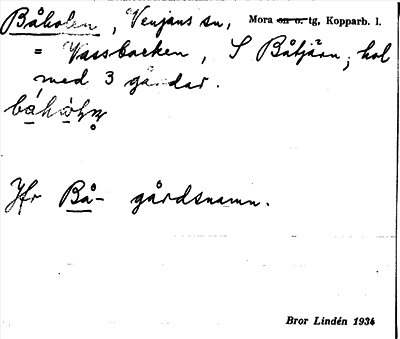 Båholen, Venjans sn, Mora sn o. tg, Kopparb. l.
= Vassbacken, S Båtjärn, hol
med 3 gårdar.
Jfr Bå- gårdsnamn.
Bror Lindén 1934